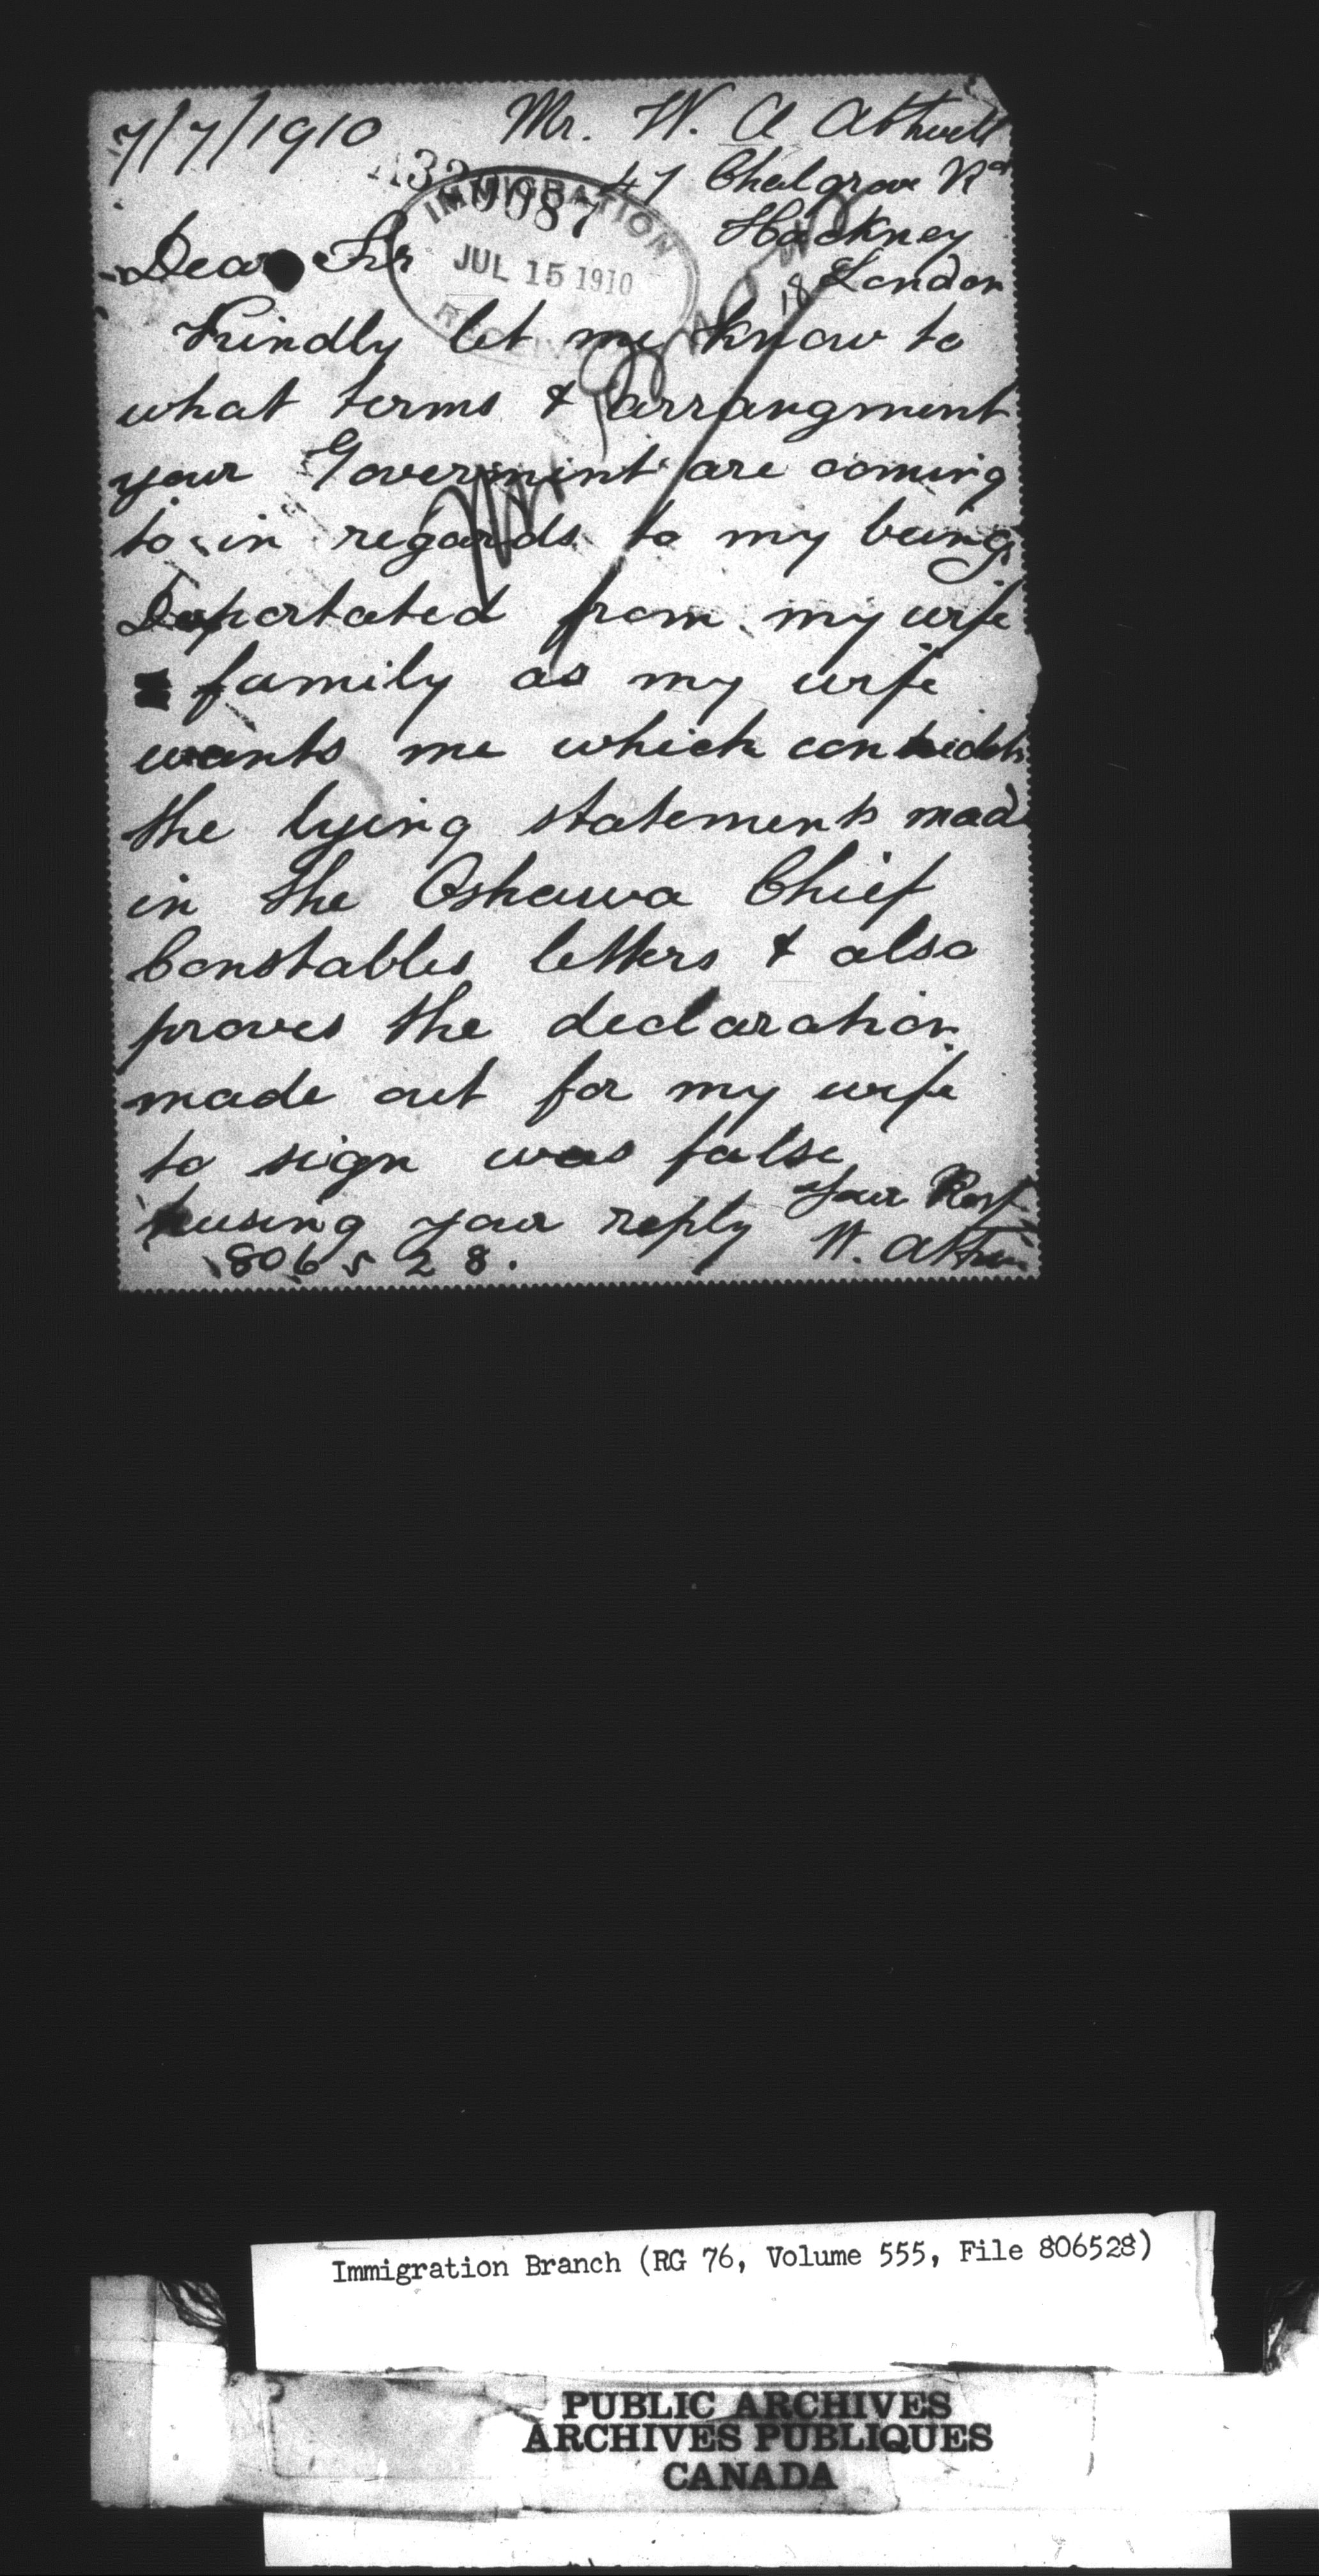 7/7/1910 Mr. W. A Athwell
47 Chalgrove Rd
Hackney
London
IMMIGRATION
JUL 15 1910
RECEIVED
Dear Sir
Kindly let me know to
what terms & arrangment
your Goverment are coming
to in regards to my being
Deportated from my wife
& family as my wife
wants me which
the lying statements mad
in the Oshawa Chief
Constables letters & also
proves the declaration
made out for my wife
to sign was false
your reply Your Resp.
W.
806528.
Immigration Branch (RG 76, Volume 555, File 806528)
PUBLIC ARCHIVES
ARCHIVES PUBLIQUES
CANADA